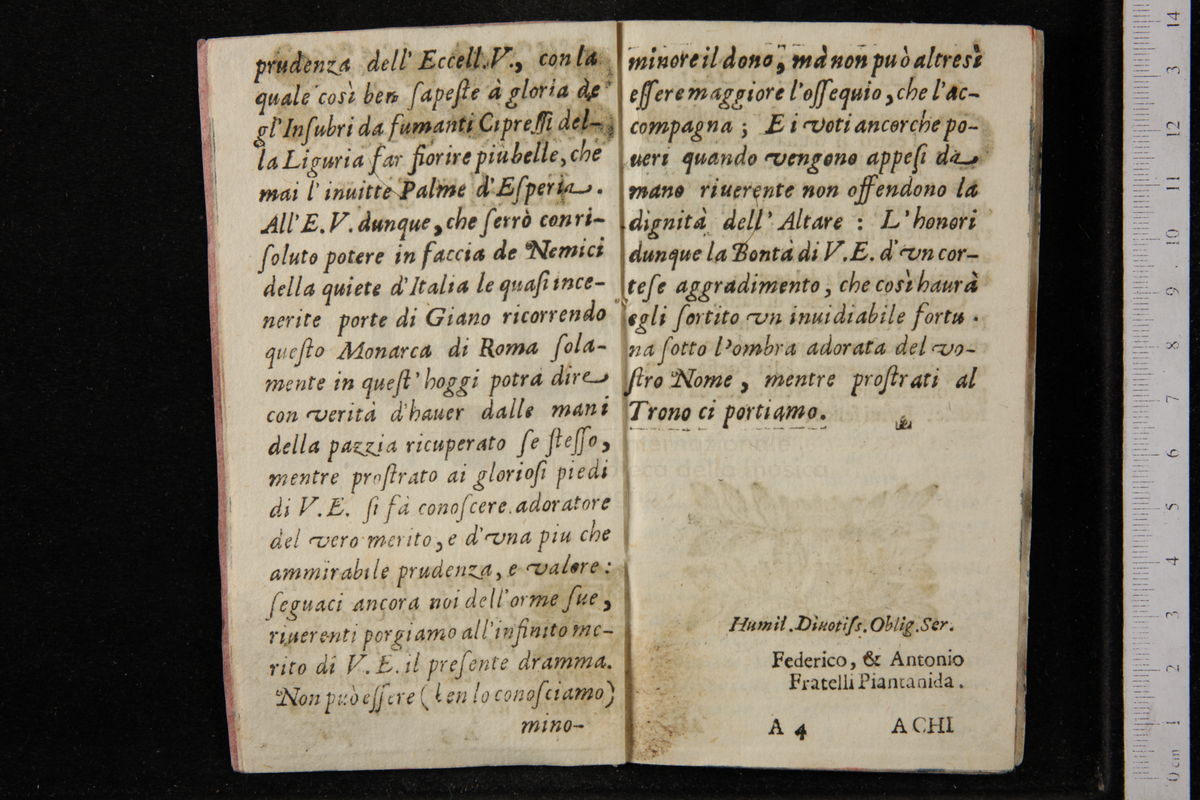 prudenza dell' Eccell.V., con la
quale così ben sapeſte à gloria de
gl'Inſubri da fumanti Cipreſſi del-
la Liguria far fiorire più belle, che
mai l'inuitte Palme d'Eſperia.
All'E.V. dunque, che ſerrò con ri-
ſoluto potere in faccia de Nemici
della quiete d'Italia le quaſi ince-
nerite porte di Giano ricorrendo
queſto Monarca di Roma ſola-
mente in queſt'hoggi potrà dire
con verità d'hauer dalle mani
della pazzia ricuperato ſe ſteſſo,
mentre proſtrato ai glorioſi piedi
di V.E. ſi fà conoſcere adoratore
del vero merito, e d'vna piu che
ammirabile prudenza, e valore:
ſeguaci ancora noi dell'orme ſue,
riuerenti porgiamo all'infinito me-
rito di V.E. il preſente dramma.
Non può eſſere (ben lo conoſciamo)
mino-
minore il dono, mà non può altresì
eſſere maggiore l'oſſequio, che l'ac-
compagna; E i voti ancorche po-
ueri quando vengono appeſi da
mano riuerente non offendono la
dignità dell'Altare: L'honori
dunque la Bontà di V.E. d'vn cor-
teſe aggradimento, che così haurà
egli ſortito vn inuidiabile fortu-
na ſotto l'ombra adorata del vo-
ſtro Nome, mentre proſtrati al
Trono ci portiamo.
Humil.Diuotiſs.Oblig.Ser.
Federico, & Antonio
Fratelli Piantanida.
A 4 A CHI
14
3
12
11
10
9
8
7
6
5
4
3
2
1
0 cm